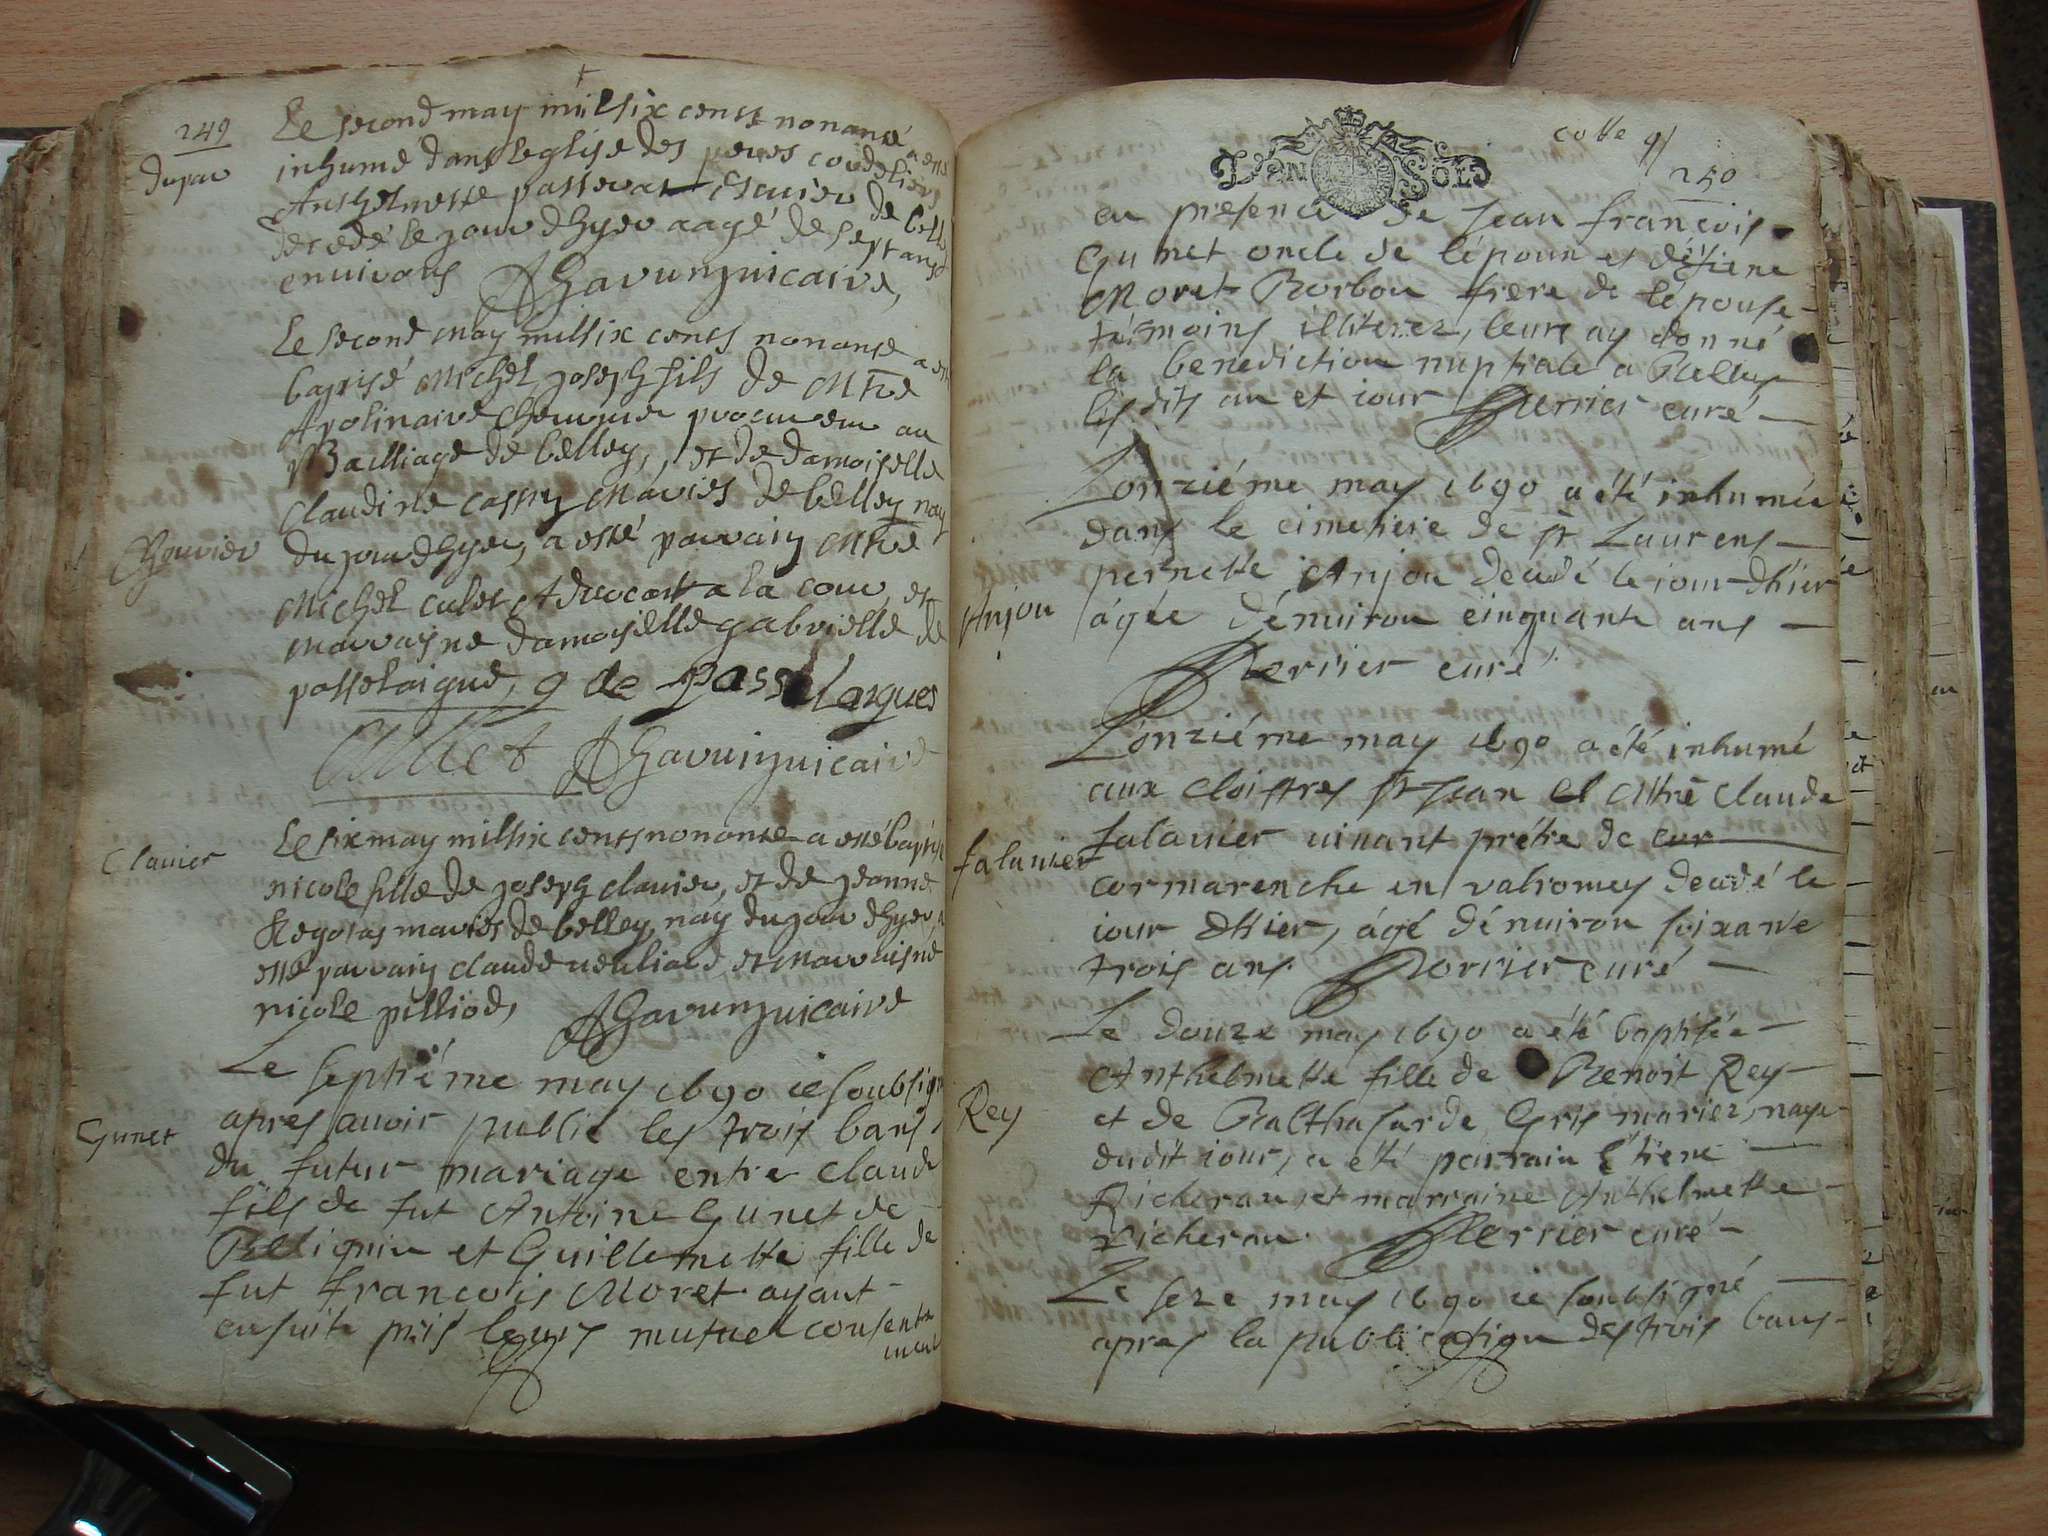 249
Le second may mil six cents nonante a este
inhume dans leglise des peres cordeliers
Anthelmette passerat
de belley
decedé le jour dhyer aagé de sept ans
environs
vicaire,
Le second may mil six cents nonante a esté
baptisé Michel joseph fils de Mtre
Apolinaire procureur au
Bailliage de belley, et de damoiselle
Claudine Mariés de belley nay
du jour dhyer, a esté parrain Mtre
Michel culet Advocat a la cour et
marrayne damoyselle gabrielle de
passelaigue, g de Passelaigues
Cullet vicaire
Clavier
Le six may mil six cents nonante a esté baptisé
nicole fille de joseph clavier, et de jeanne
mariés de belley, nay du jour dhyer a
esté parrain claude et marraisne
nicole pilliod, vicaire
Gunet
Le septiéme may 1690 ie soubsigné
apres avoir publié les trois bans
du futur mariage entre claude
fils de fut Antoine Gunet de
Billignin et Guillemette fille de
fut francois Moret ayant
ensuite pris leurs mutuel consente
ment
cotte 91
250
DEN SOLS
en presence de Jean francois
Gunet oncle de lépoux et détiene
Moret Borbon frere de lépouse
tésmoins illiterez, leurs ay donné
la benediction nuptiale a Belley
lesdits an et iour Perrier curé
Lonziéme may 1690 a été inhumée
dans le cimetiere de st Laurens
pernette Anjou decedé le iour dhier
Anjou
âgée dénuiron cinquante ans
Perrier curé
Lonziéme may 1690 a été inhumé
aux Cloistres st Jean el Mtre Claude
falavier uiuant prétre de cur
falavier
cormarenche en valromey decedé le
iour dhier, âgé dénuiron soixante
trois ans. Perrier curé
Le douze may 1690 a été baptisée
Anthelmette fille de Benoit Rey
Rey
et de Balthasarde Gris mariez, naye
dudit iour, a été parrain Etiene
Richeran et marraine Anthelmette
richeran. Perrier curé
Le seze may 1690 ie soubsigné
apres la publication des trois bans